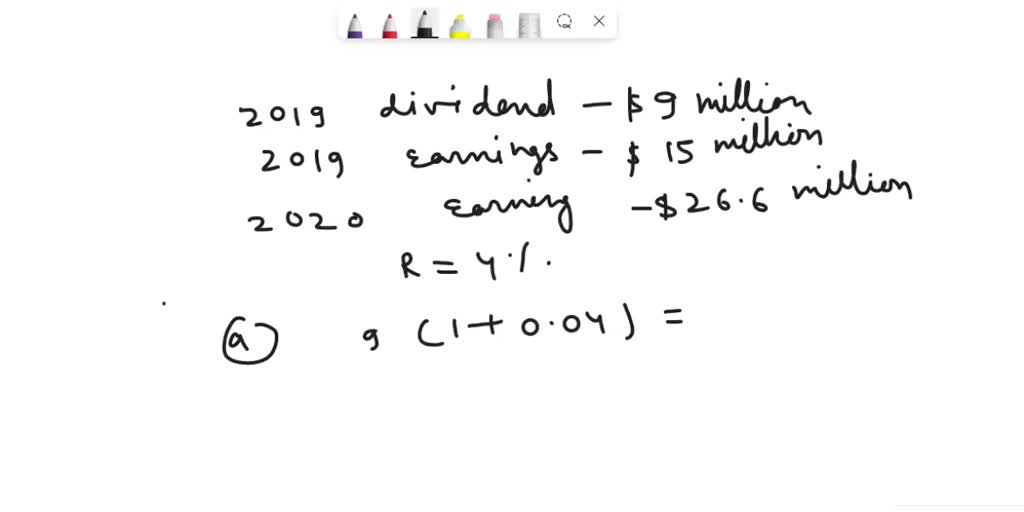 2019 dividend - $9 million
2019 earnings - $ 15 million
2020 Earning - $26.6 million
R = 4%.
(a) 9 (1+0.04) =